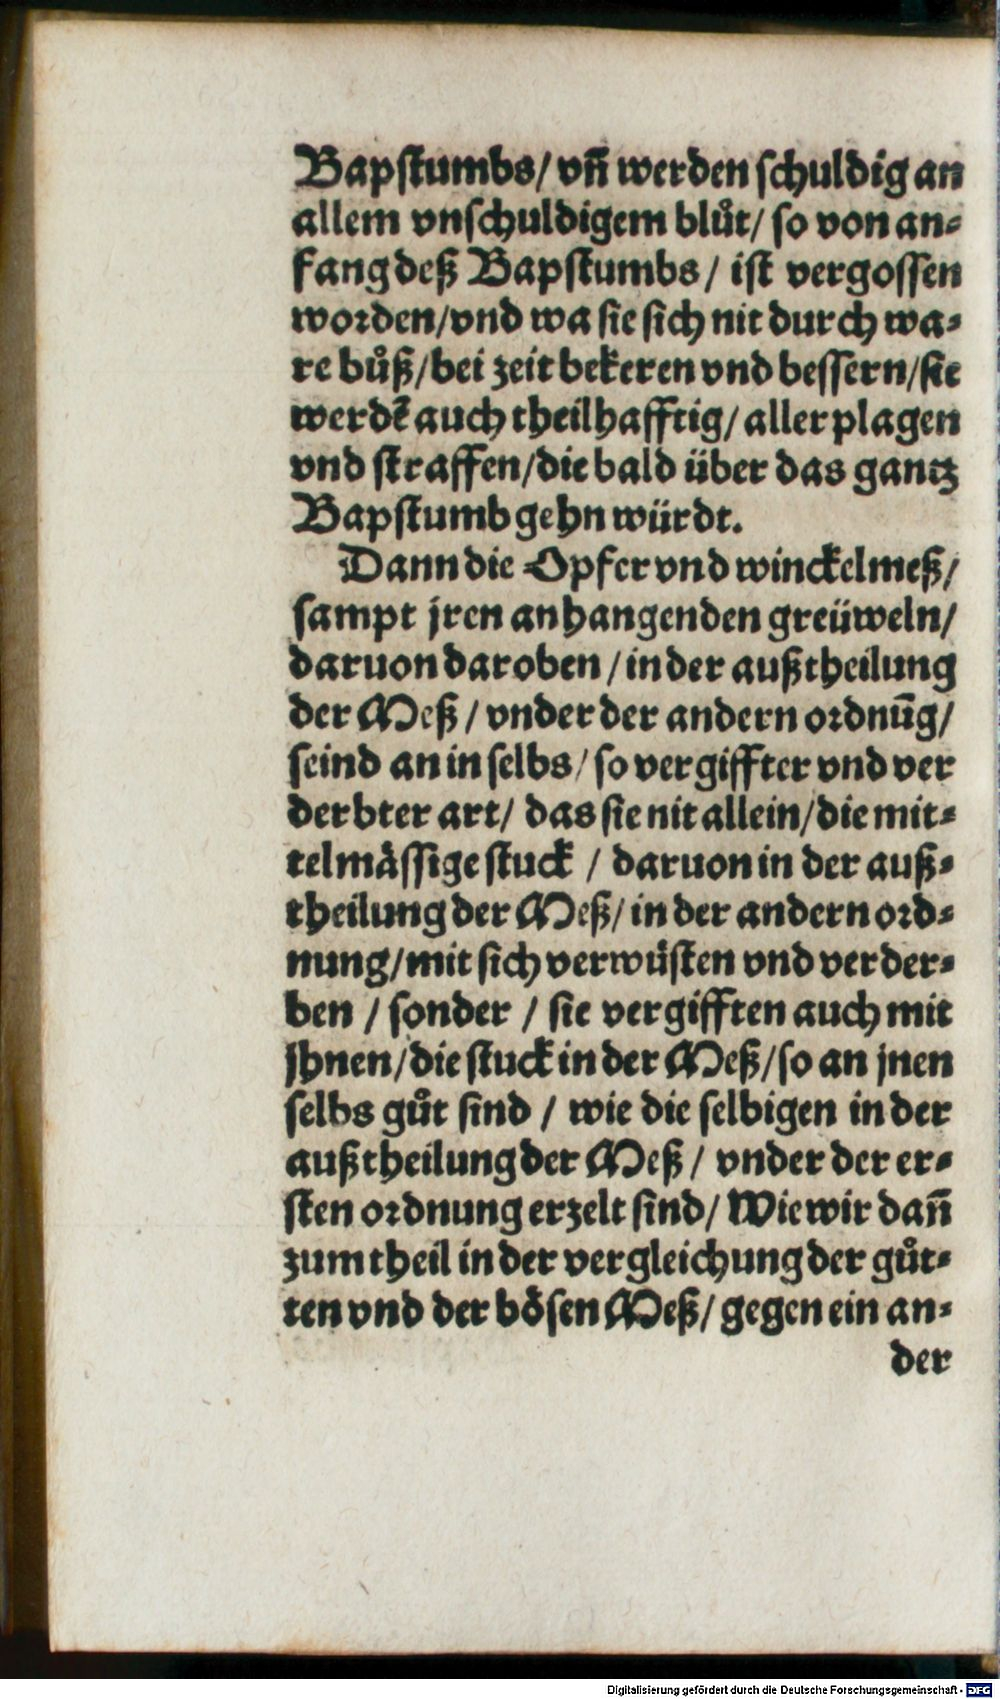 Bapſtumbs/ vñ werden ſchuldig an
allem vnſchuldigem blůt/ ſo von an⸗
fang deß Bapſtumbs/ iſt vergoſſen
worden/vnd wa ſie ſich nit durch wa⸗
re bůß/bei zeit bekeren vnd beſſern/ſie
werdē auch theilhafftig/ aller plagen
vnd ſtraffen/die bald über das gantz
Bapſtumb gehn würdt.
Dann die Opfer vnd winckelmeß/
ſampt jren anhangenden greüweln/
daruon daroben / in der außtheilung
der Meß / vnder der andern ordnūg/
ſeind an in ſelbs/ ſo vergiffter vnd ver
derbter art/ das ſie nit allein/die mit⸗
telmäſſige ſtuck / daruon in der auß⸗
theilung der Meß/ in der andern ord⸗
nung/mit ſich verwüſten vnd verder⸗
ben / ſonder / ſie vergifften auch mit
jhnen/die ſtuck in der Meß/ſo an jnen
ſelbs gůt ſind / wie die ſelbigen in der
außtheilung der Meß / vnder der er⸗
ſten ordnung erzelt ſind/ Wie wir dañ
zum theil in der vergleichung der gůt⸗
ten vnd der böſen Meß/ gegen ein an⸗
der
Digitalisierung gefördert durch die Deutsche Forschungsgemeinschaft - DFG